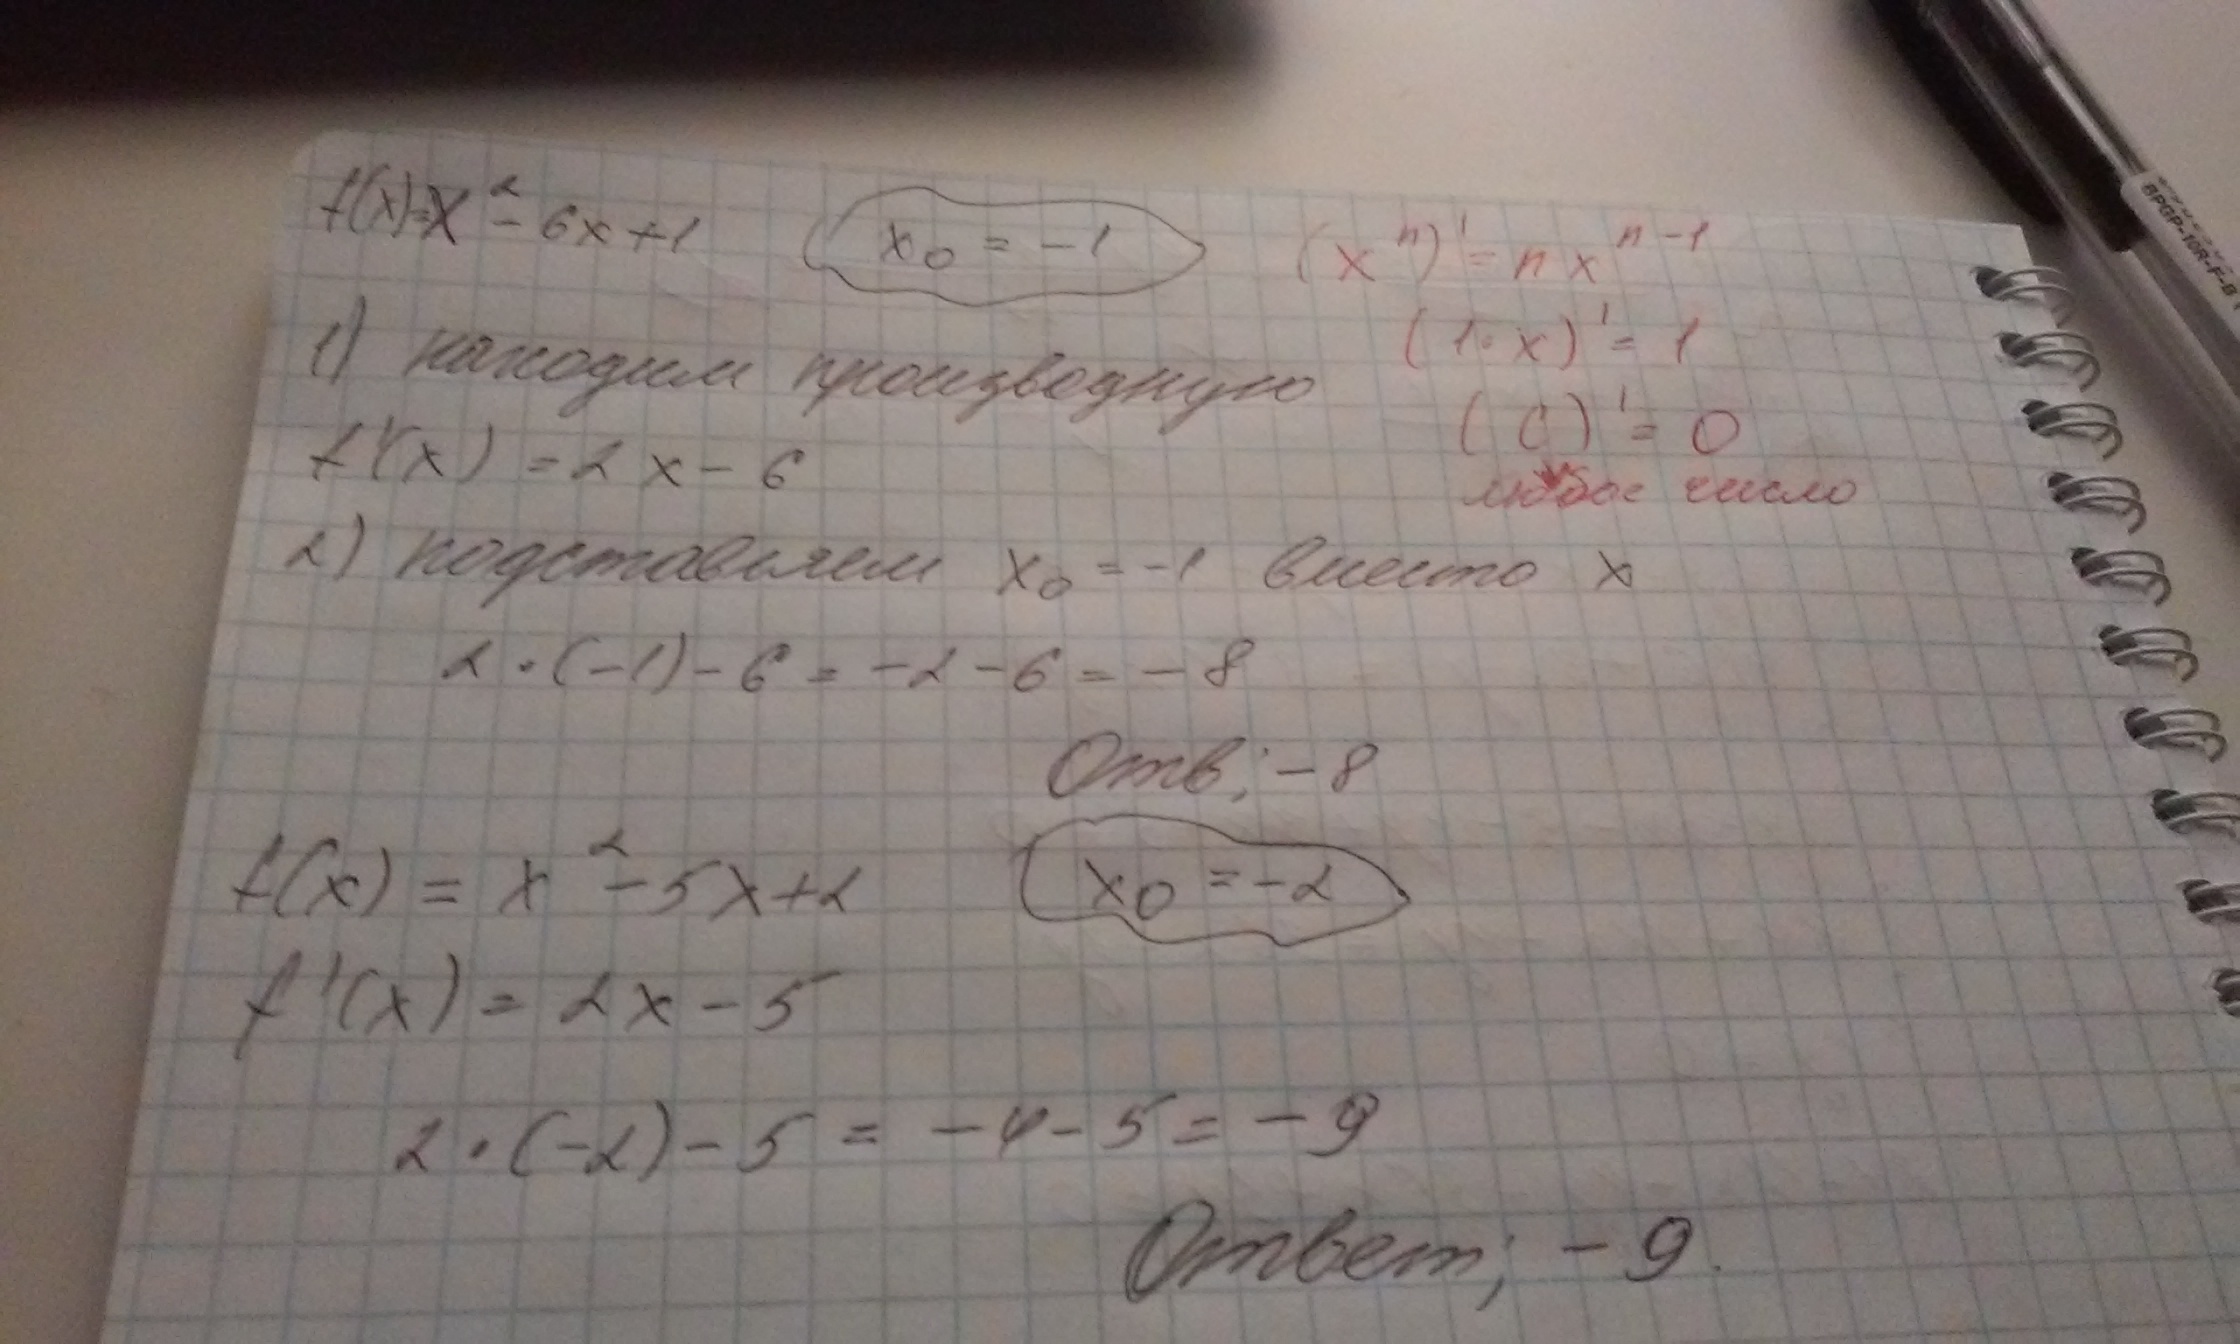 f(x)=x² - 6x+1
x₀ = -1
(xⁿ)' = n xⁿ⁻¹
(1·x)' = 1
(C)' = 0
любое число
1) находим производную
f'(x) = 2x - 6
2) подставляем x₀ = -1 вместо x
2·(-1)-6 = -2-6 = -8
Отв; -8
f(x) = x² - 5x+2
x₀ = -2
f'(x) = 2x - 5
2·(-2)-5 = -4-5 = -9
Ответ; -9.
BPGP-10R-F-B